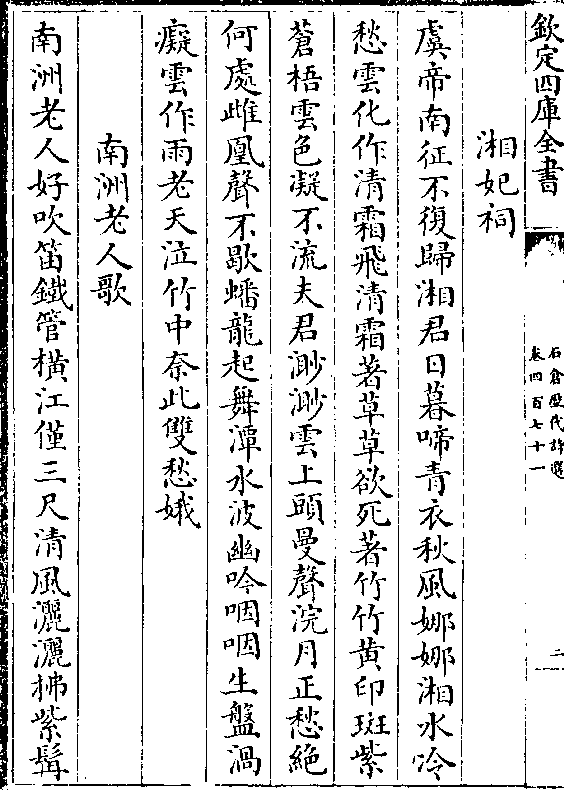 欽定四庫全書
石倉歷代詩選
卷四百七十一
二
湘妃祠
虞帝南征不復歸湘君日暮啼青衣秋風娜娜湘水冷
愁雲化作清霜飛清霜著草草欲死著竹竹黄印斑紫
蒼梧雲色凝不流夫君渺渺雲上頭曼聲浣月正愁絶
何處雌凰聲不歇蟠龍起舞潭水波幽吟咽咽生盤渦
癡雲作雨老天泣竹中奈此雙愁娥
南洲老人歌
南洲老人好吹笛鐵管橫江僅三尺清風灑灑拂紫髯